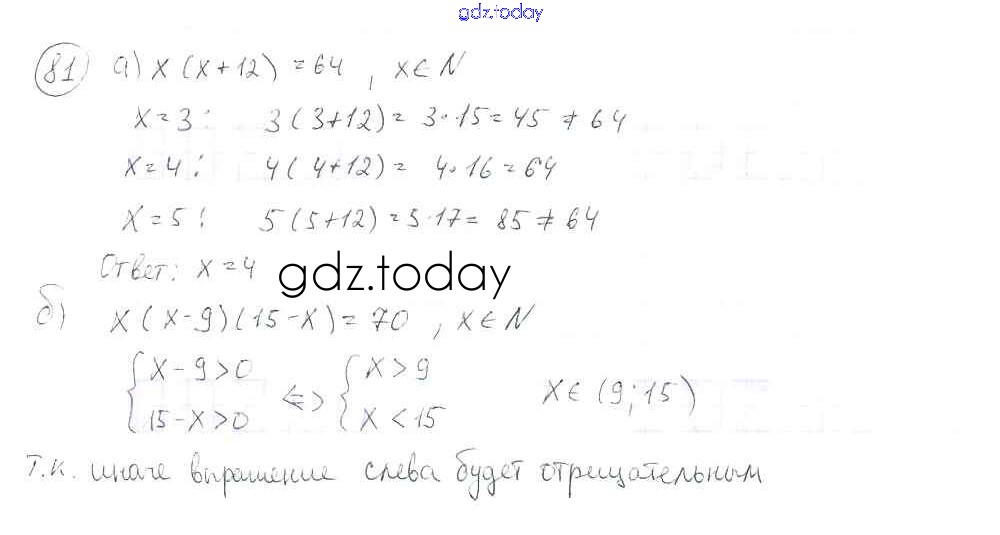 gdz.today
81) а) x (x+12) = 64, x ∈ N
x=3: 3(3+12) = 3·15 = 45 ≠ 64
x=4: 4(4+12) = 4·16 = 64
x=5: 5(5+12) = 5·17 = 85 ≠ 64
Ответ: x=4
gdz.today
б) x(x-9)(15-x) = 70, x ∈ N
{ x-9>0 <=> { x>9 x ∈ (9;15)
{ 15-x>0 { x<15
Т.К. иначе выражение слева будет отрицательным